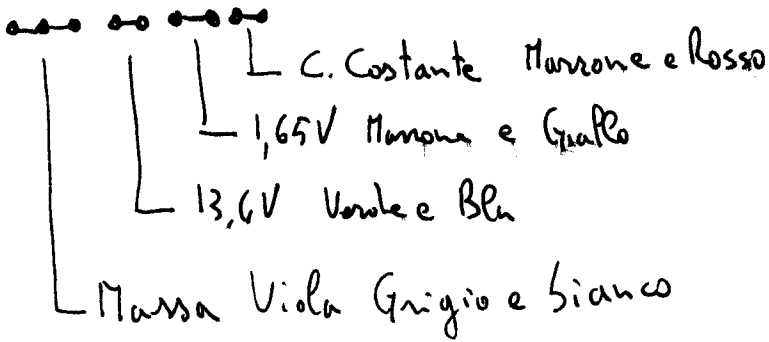 C. Costante Marrone e Rosso
1,65V Marrone e Giallo
13,6V Verde e Blu
Massa Viola Grigio e bianco